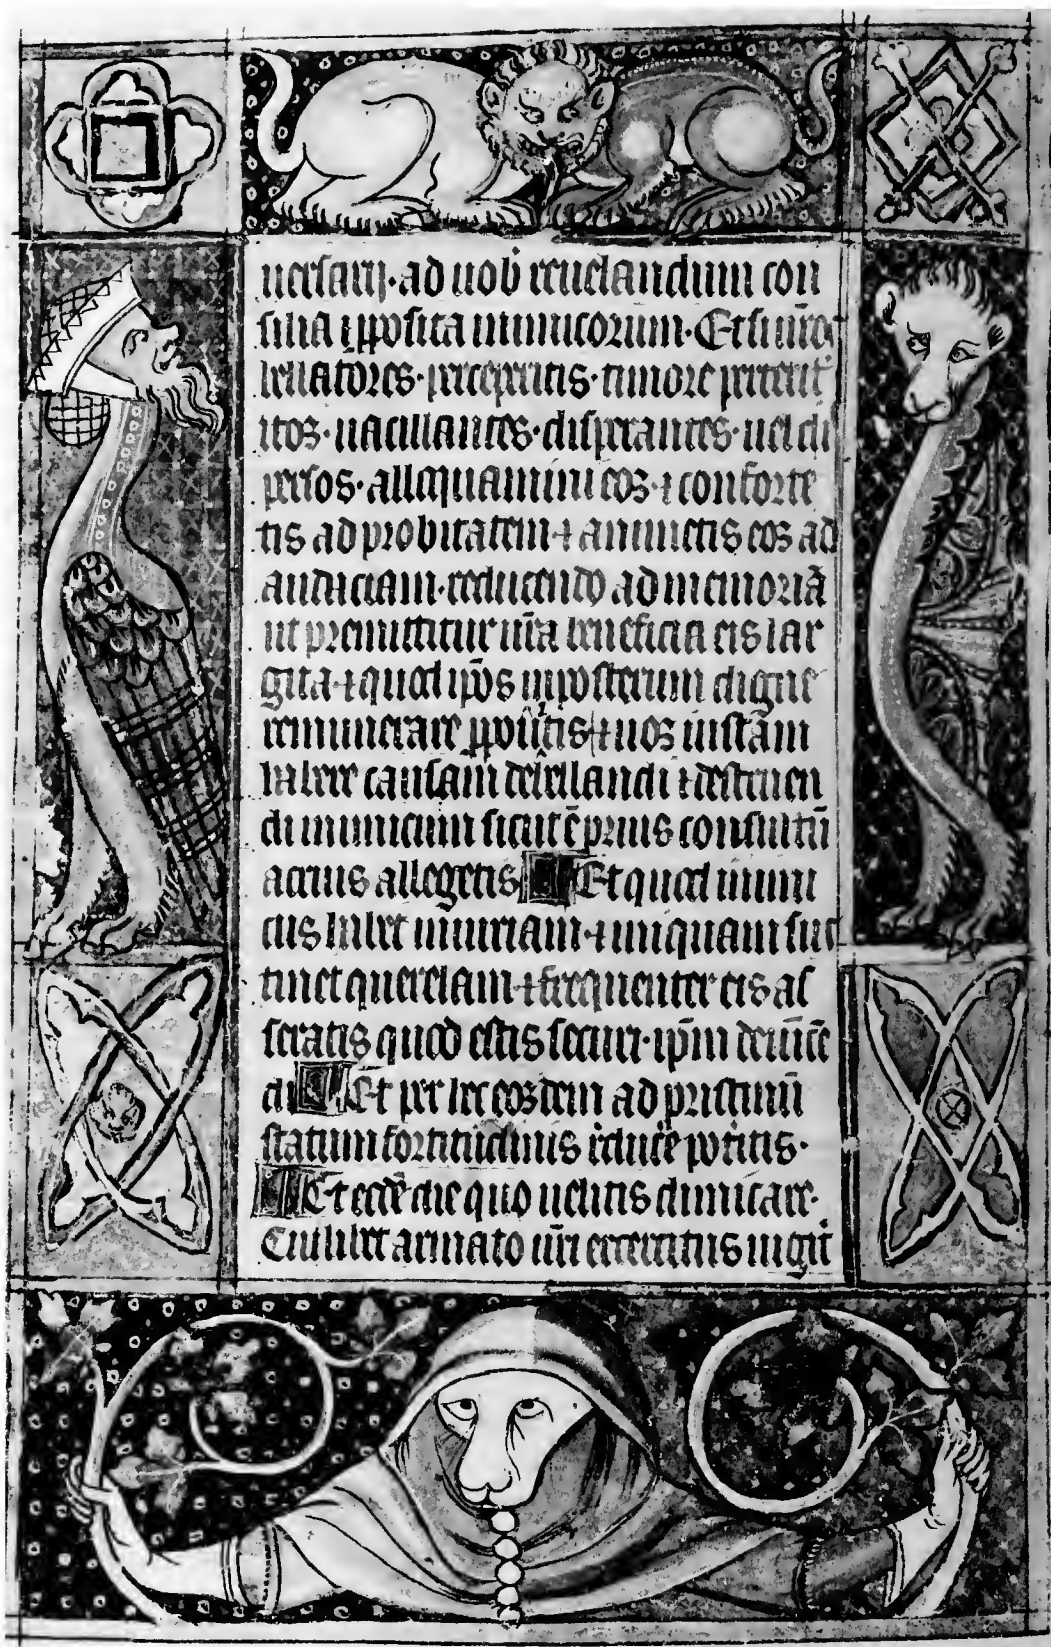 uersarij · ad uob̄ reuelandum con
silia ⁊ p̱posita inimicorum · Et si ur̄os
bellatores · perceperitis · timore perterr̄
itos · uacillantes · disperantes · uel di
persos · alloquamini eos · ⁊ conforte
tis ad probitatem ⁊ animetis eos ad
audaciam · reducendo ad memoriā
ut premittitur ur̄a beneficia eis lar
gita ⁊ quod ip̄os inposterum digne
remunerare p̱pōitis ⁊ uos iustam
habere causam debellandi ⁊ destruen
di inimicum sicut ē prius consultū
acrius allegetis Et quod inimi
cus habet iniuriam ⁊ iniquam sus
tinet querelam ⁊ frequenter eis as
seratis quod estis securi · ip̄m deuīcē
di Et per hec eosdem ad pristinū
statum fortitudinis reduc̄e pot̄itis ·
Et eadē die quo uelitis dimicare ·
Cuilibet armato ur̄i exercitus iūgit̄